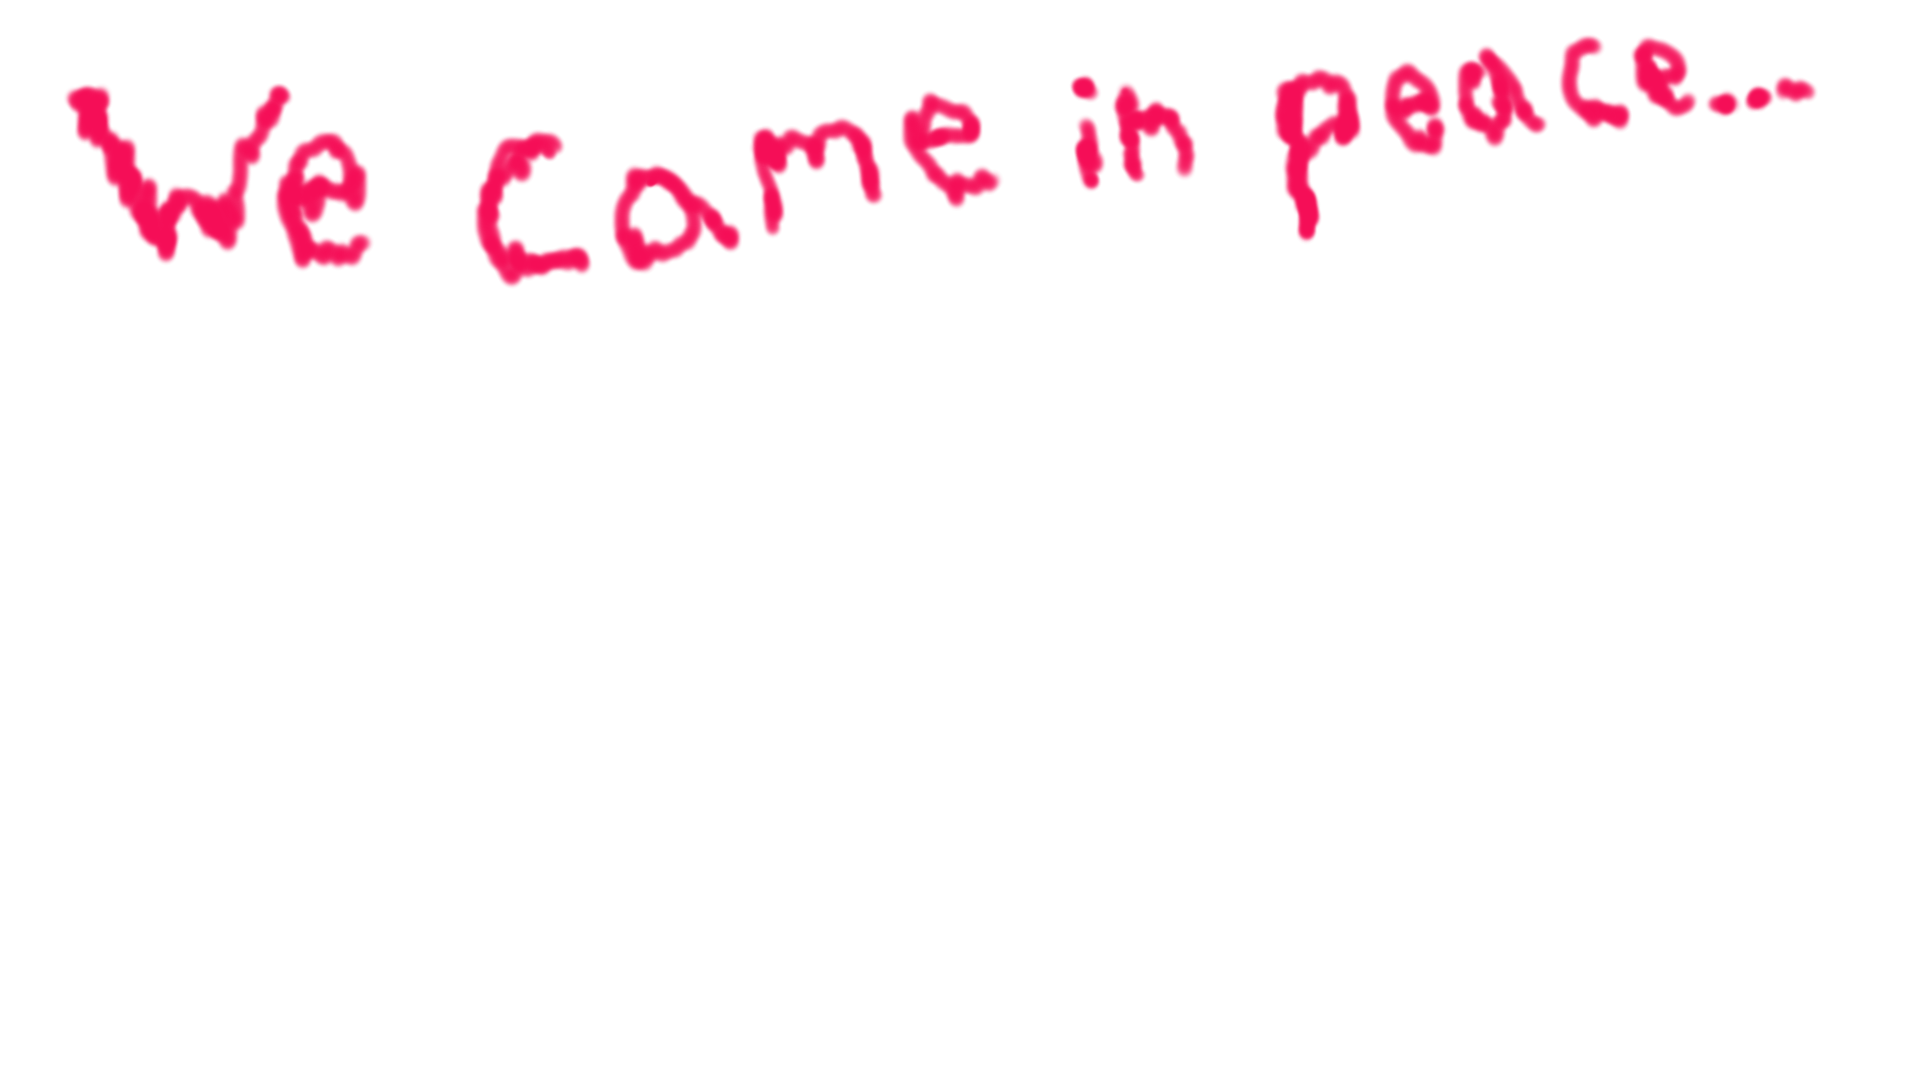 We came in peace...